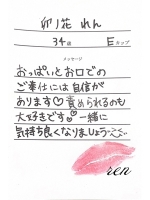 卯ノ花 れん
34歳 Eカップ
メッセージ
おっぱいとお口での
ご奉仕には自信が
あります♡責められるのも
大好きです♡一緒に
気持ち良くなりましょう〜
ren